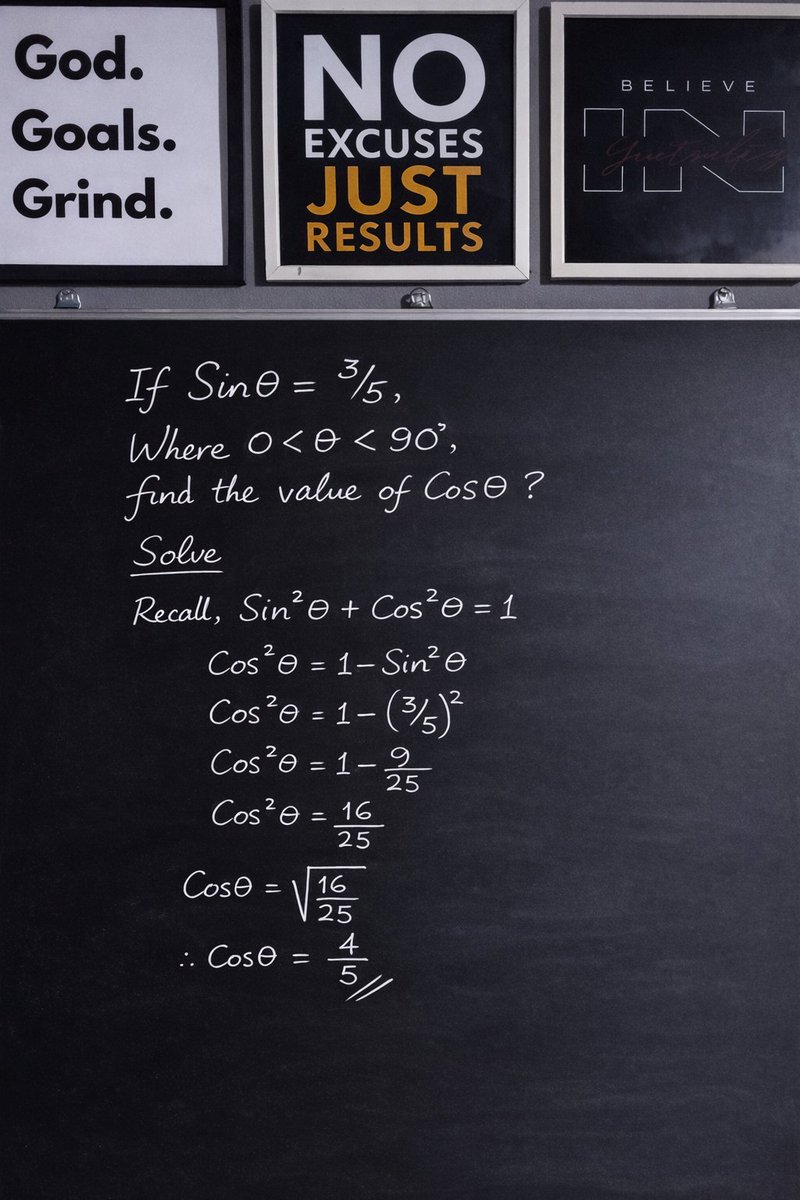 God.
Goals.
Grind.
NO
EXCUSES
JUST
RESULTS
BELIEVE
IN
If Sinθ = 3/5,
Where 0 < θ < 90°,
find the value of Cosθ ?
Solve
Recall, Sin²θ + Cos²θ = 1
Cos²θ = 1 − Sin²θ
Cos²θ = 1 − (3/5)²
Cos²θ = 1 − 9/25
Cos²θ = 16/25
Cosθ = √16/25
∴ Cosθ = 4/5 //